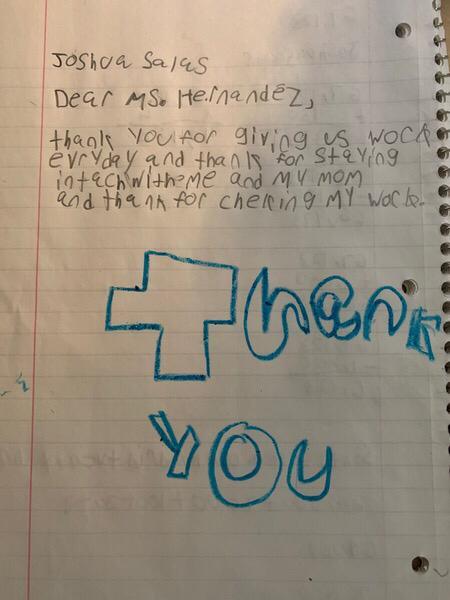 Joshua Salas
Dear Ms. Hernandez,
thank you for giving us work
evryday and thank for staying
intach withe me and my mom
and thank for cheking my work.
Thank
you